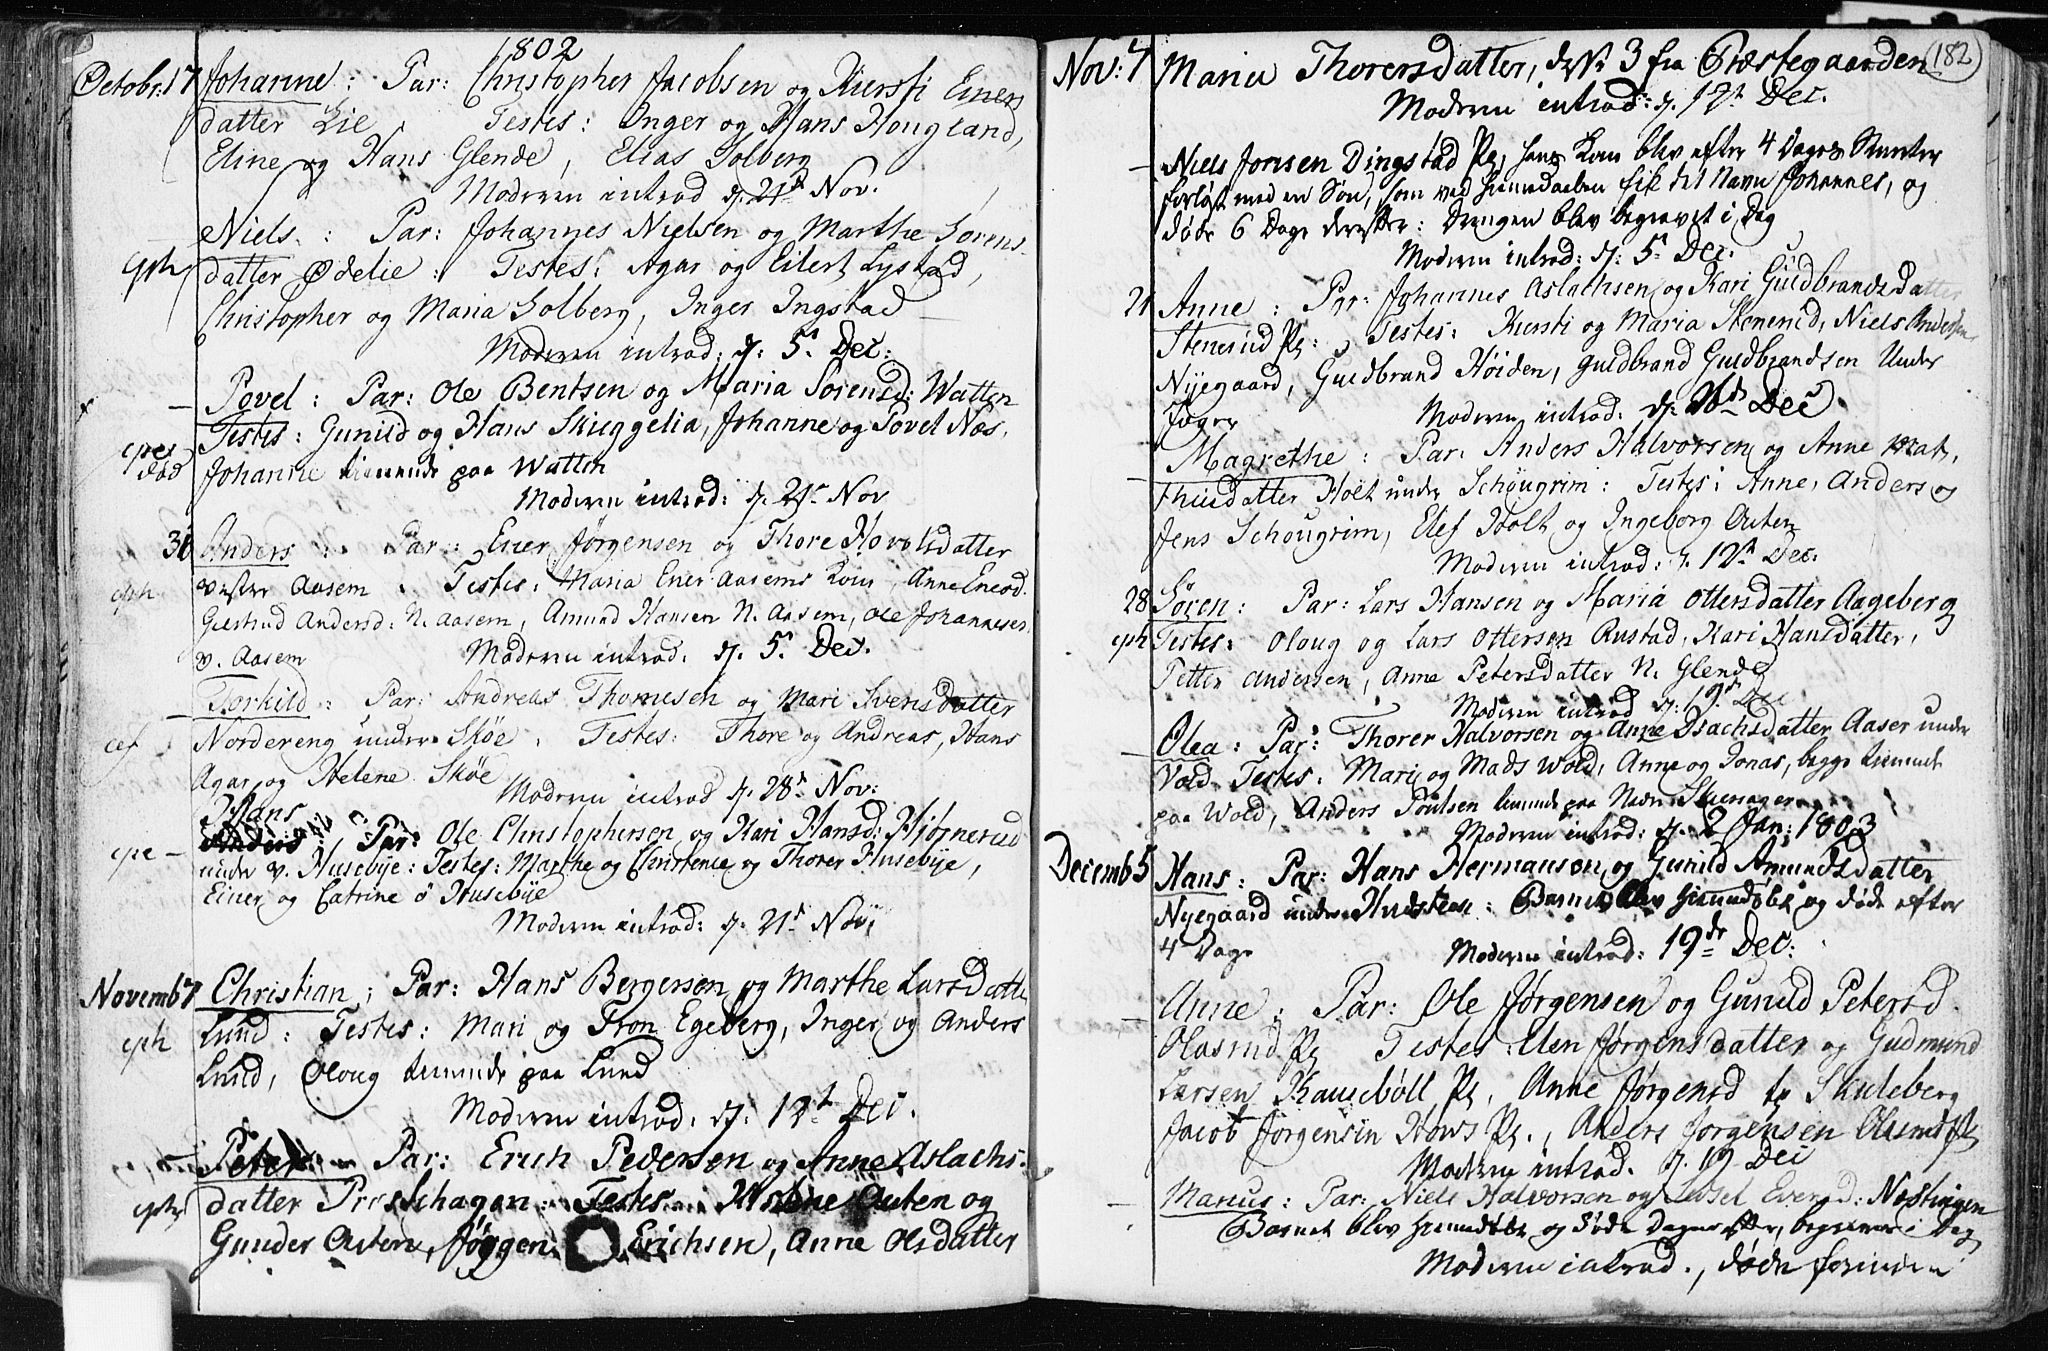 1802
Octobr: 17 Johanne: Par: Christopher Jacobsen og Kiersti Einers
datter Lie, Testes: Inger og Hans Hougland,
Eline og Hans Glende, Elias Solberg
Moderen introd d. 21de Nov.
Niels: Par: Johannes Nielsen og Marthe Sorens-
datter Ødelie: Testes: Agar og Eilert Lystad,
Christopher og Maria Solberg, Inger Ingstad
Moderen introd: d. 5. Dec:
Povel: Par: Ole Bentsen og Maria Sorensd: Watten
Testes: Gunild og Hans Skieggelia, Johanne og Povel Næs,
død Johanne tienende paa Watten
Moderen introd: d. 21 Nov
31 Anders: Par: Ener Jørgensen og Thore Hovelsdatter
vester Aasem. Testes: Maria Ener Aasems Kone, Anne
Giertrud Andersd: N. Aasem, Amund Hansen N. Aasem, Ole Johannesen
v. Aasem Moderen introd: d. 5. Dec.
Torkild: Par: Andreas Thomesen og Mari Svensdatter
Nordereng under Skøe. Testes: Thore og Andreas, Hans
Agar og Helene Skøe
Moderen introd d. 28d Nov:
Hans
Anders: Par: Ole Christophersen og Kari Hansd: Hiørnerud
under v. Husebÿe: Testes: Marthe og Christence og Thorer Husebÿe,
Einer og Catrine ø Husebÿe
Moderen introd: d. 21d Nov;
Novemb 7 Christian; Par: Hans Bergersen og Marthe Larsdatter
eph Lund: Testes: Mari og Tron Egeberg, Inger og Anders
Lund, Oloug tienende paa Lund
Moderen introd: d. 12t Dec.
Peter: Par: Erich Pedersen og Anne Aslachs-
datter Præstehagen: Testes Helene Outen og
Gunder Outen, Jørgen Erichsen, Anne Olsdatter
182
Nov: 7 Maria Thorersdatter, fra Præstegaarden
Moderen introd: d. 12t Dec.
Niels Jonsen Dingstad Pl, hans Kone blev efter 4 Dages Smerter
forløst med en Søn, som ved Hiemedaaben fik det Navn Johannes, og
døde 6 Dage derefter: Drengen blev begravet i Dag
Moderen introd: d: 5. Dec.
21 Anne: Par: Johannes Aslachsen og Kari Guldbrandsdatter
Stenerud Pl:, Testes: Kiersti og Maria Stenerud, Niels Andersen
Nÿegaard, Guldbrand Høiden, Guldbrand Guldbrandsen under
Moderen introd: d. 26d Dec.
Magrethe: Par: Anders Halvorsen og Anne Mat-
thisdatter Holt under Schøugrim: Testes: Anne, Anders og
Jens Schougrim, Elef Holt og Ingeborg Outen
Moderen introd: d. 12t Dec.
28 Søren: Par: Lars Hansen og Maria Ottersdatter Aageberg
eph Testes: Oloug og Lars Ottersen Rustad, Kari Hansdatter,
Petter Andersen, Anne Petersdatter N. Glende
Moderen introd d. 19d Dec
Olea: Par: Thorer Halvorsen og Anne Isachsdatter Aaser under
Vold. Testes: Mari og Mads Wold, Anne og Jonas, begge tienende
paa Wold, Anders Poulsen tienende paa Nedr. Skienager
Moderen introd: d. 2 Jan: 1803
Decemb 5 Hans: Par: Hans Hermansen og Gunild Amundsdatter
Nyegaard under Hudsteen: Barnet blev hiemdøbt og døde efter
4 Dage Moderen introd: 19de Dec:
Anne: Par: Ole Jørgensen og Gunild Petersd.
Olasrud Pl Testes: Elen Jørgensdatter og Gudmund
Larsen Kausebøll Pl, Anne Jørgensd Skuleberg
Jacob Jørgensen Hows Pl., Anders Jørgensen Olasrud Pl
Moderen introd. d. 19 Dec
Marius: Par: Niels Halvorsen og Sidsel Evensd: Næstingen
Barnet blev hiemdøbt og døde Dagen efter, begraven i Dag
Moderen introd., døde forinden